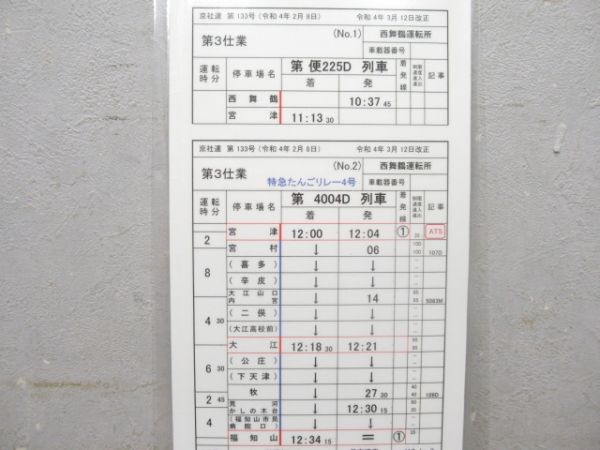 京社達 第133号(令和4年2月8日) 令和4年3月12日改正
第3仕業 (No.1) 西舞鶴運転所
車載器番号
運転時分 停車場名 第 便225D 列車 着発線 制限速度進入進出 記事
着 発
西舞鶴 10:37 45
宮津 11:13 30
京社達 第133号(令和4年2月8日) 令和4年3月12日改正
第3仕業 (No.2) 西舞鶴運転所
特急たんごリレー4号 車載器番号
運転時分 停車場名 第 4004D 列車 着発線 制限速度進入進出 記事
着 発
宮津 12:00 12:04 ① ATS
2
宮村 ↓ 06 107D
(喜多) ↓ ↓
8
(辛皮) ↓ ↓
大江山口内宮 ↓ 14
(二俣) ↓ ↓
4 30
(大江高校前) ↓ ↓
大江 12:18 30 12:21
(公庄) ↓ ↓
6 30
(下天津) ↓ ↓
牧 ↓ 27 30
2 45
荒河かしの木台 ↓ 12:30 15
(福知山市民病院口) ↓ ↓
4
福知山 12:34 15 = ①